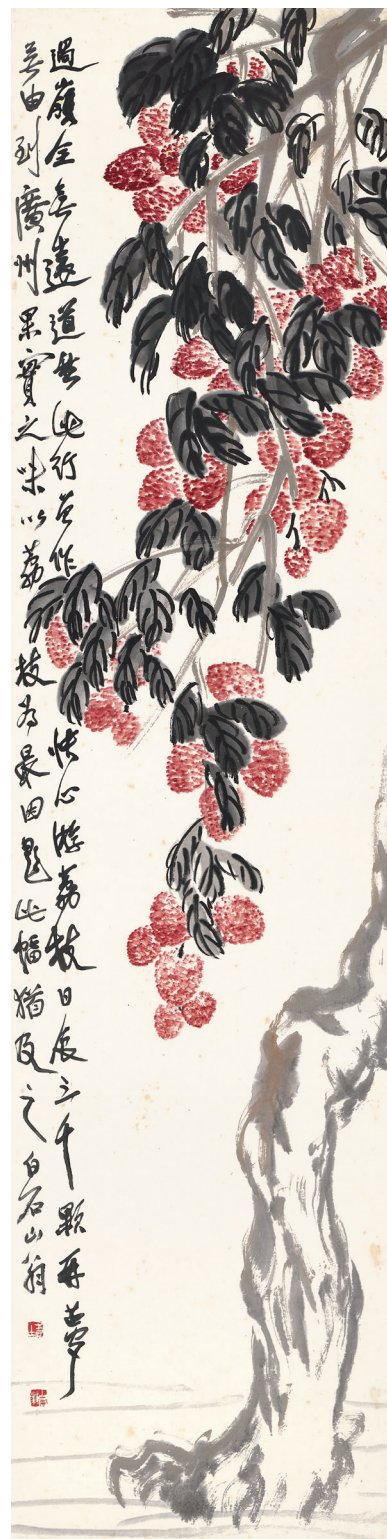 過嶺全無遠道愁此行曾作快心遊荔枝日食三千顆再夢
無由到廣州果實之味以荔枝為最因題此幅猶及之白石山翁